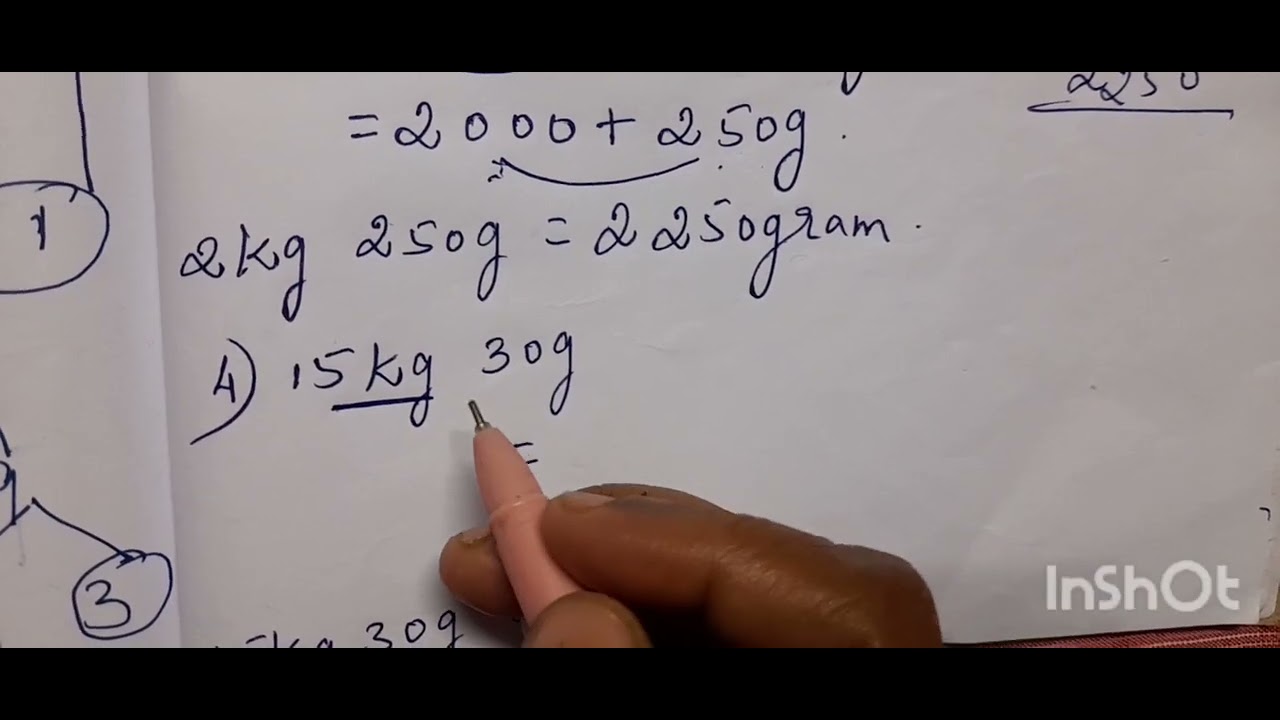 2250
= 2000 + 250g.
2kg 250g = 2250gram.
1
4) 15kg 30g
=
3
kg 30g
InShOt